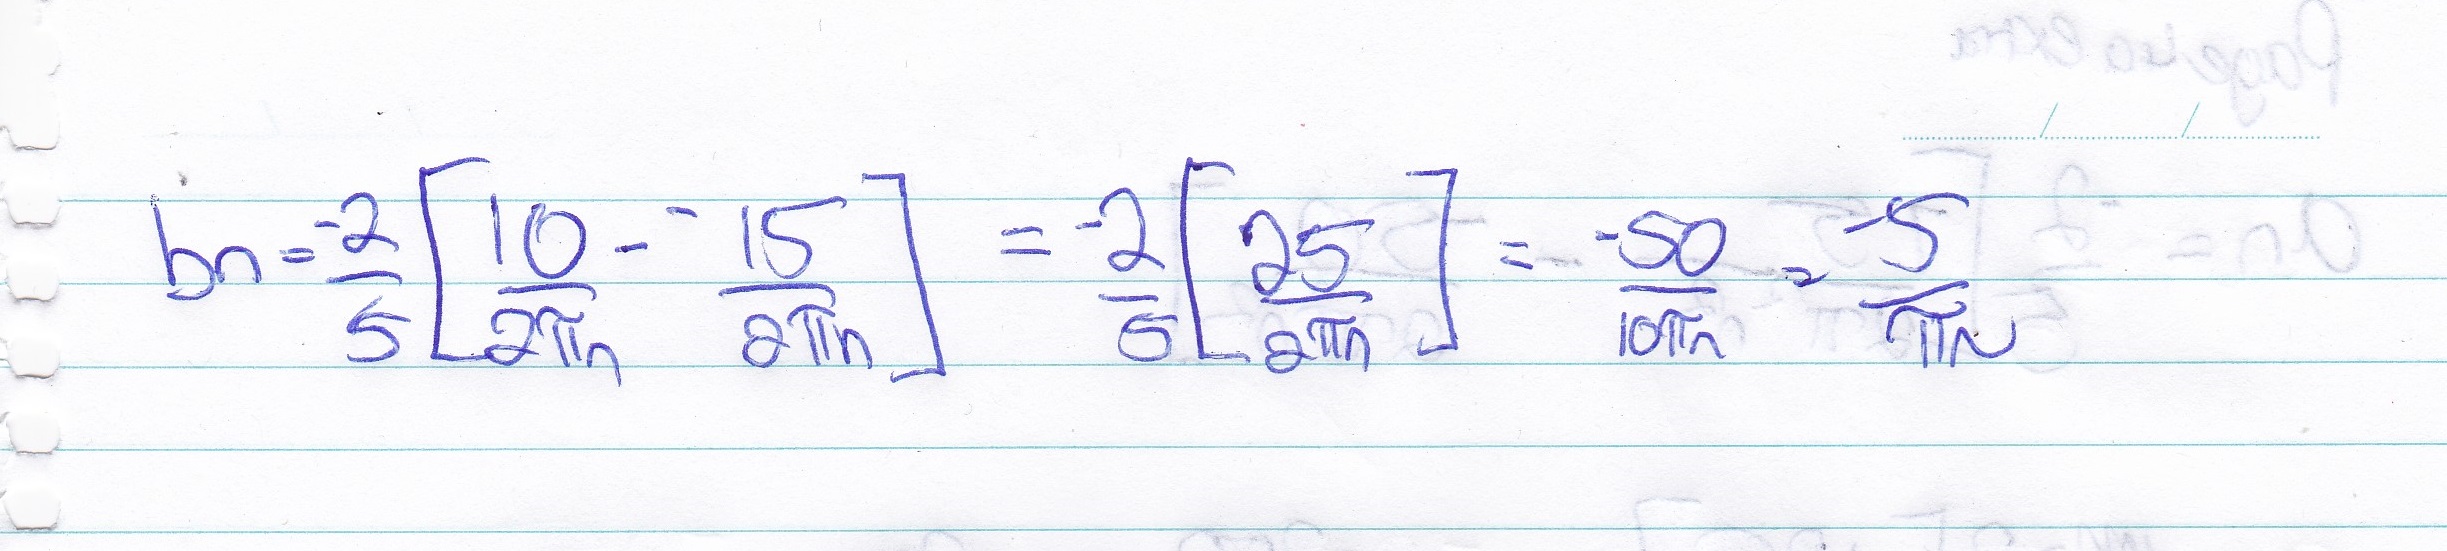 bn = -2/5 [10/2πn - -15/2πn] = -2/5 [25/2πn] = -50/10πn = -5/πn